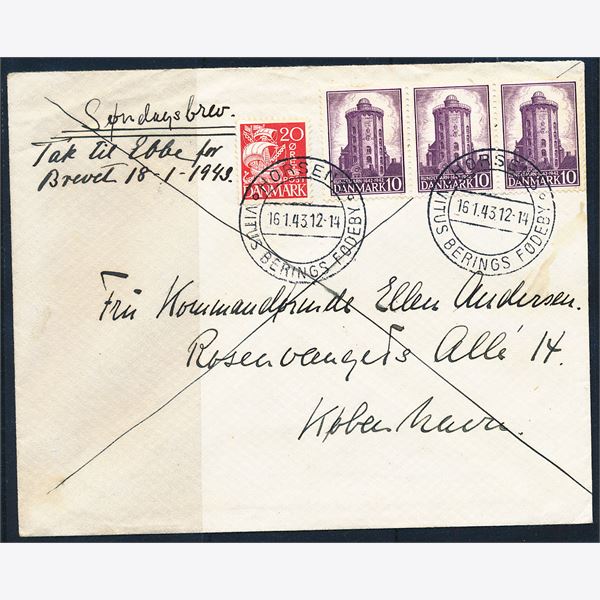 Søndagsbrev.
Tak til Ebbe for
Brevet 18-1-1943.
20
ØRE
POST
DANMARK
DANMARK 10
DANMARK 10
DANMARK 10
HORSENS
16.1.43.12-14
VITUS BERINGS FØDEBY
HORSENS
16.1.43.12-14
VITUS BERINGS FØDEBY
Fru Kommandørinde Ellen Andersen.
Rosenvangets Allé 14.
København.